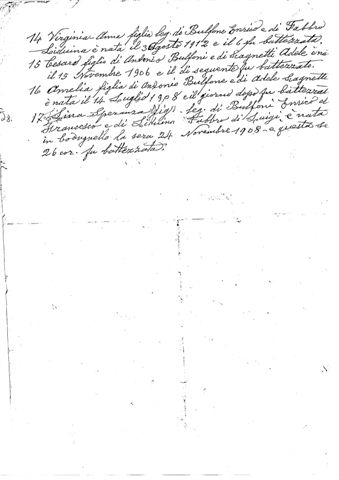 14 Virginia Anna figlia leg. di Bulfone Enrico e di Fabbro
Liduina è nata il 3 Agosto 1912 e il 6 fu battezzata
15 Cesare figlio di Antonio Bulfoni e di Zagnetti Adele è na
il 15 Novembre 1906 e il dì seguente fu battezzato.
16 Amelia figlia di Antonio Bulfone e di Adele Zagnetti
è nata il 14 Luglio 1908 e il giorno dopo fu battezzat
17 Speranza fig. leg. di Bulfoni Enrico di
Francesco e di Fabbro di Luigi, è nata
in la sera 24 Novembre 1908 e questa se
26 cor. fu battezzata.